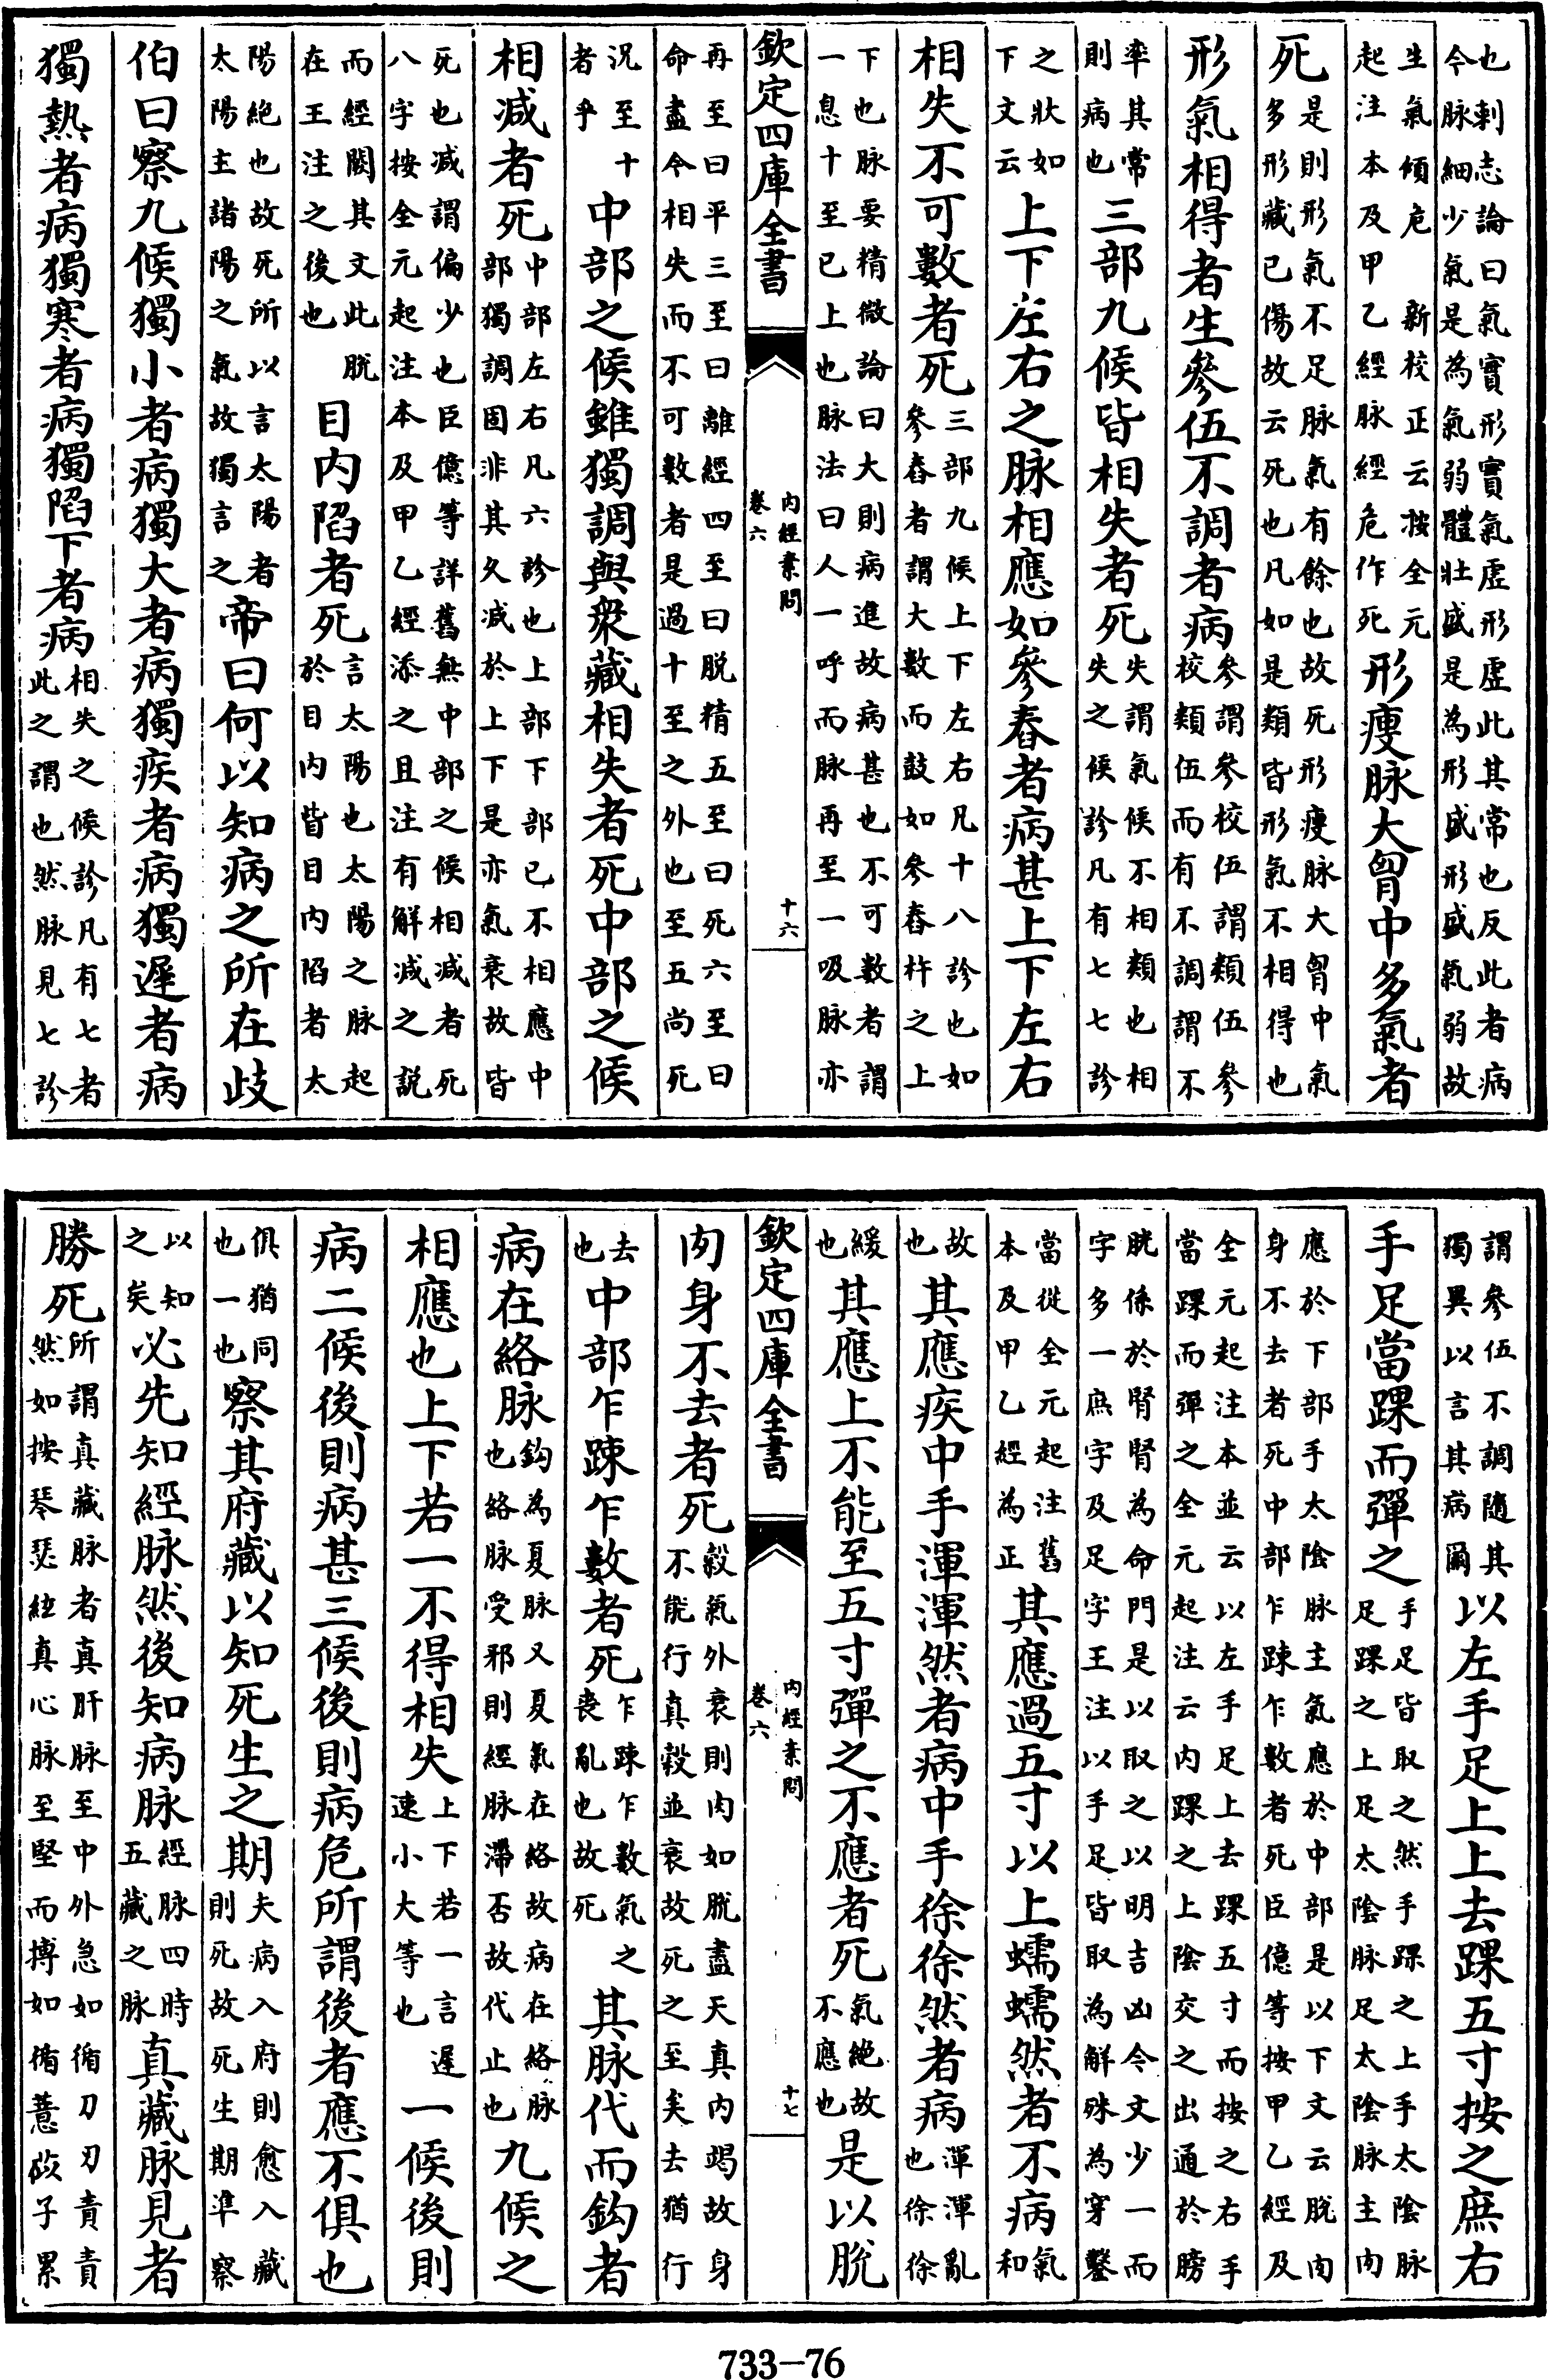 也刺志論曰氣實形實氣虛形虛此其常也反此者病
今脉細少氣是為氣弱體壯盛是為形盛形盛氣弱故
生氣傾危 新校正云按全元
起注本及甲乙經脉經危作死
形瘦脉大胷中多氣者
死
是則形氣不足脉氣有餘也故死形瘦脉大胷中氣
多形藏已傷故云死也凡如是類皆形氣不相得也
形氣相得者生參伍不調者病
參謂參校伍謂類伍參
校類伍而有不調謂不
率其常
則病也
三部九候皆相失者死
失謂氣候不相類也相
失之候診凡有七七診
之狀如
下文云
上下左右之脉相應如參舂者病甚上下左右
相失不可數者死
三部九候上下左右凡十八診也如
參舂者謂大數而鼓如參舂杵之上
下也脉要精微論曰大則病進故病甚也不可數者謂
一息十至已上也脉法曰人一呼而脉再至一吸脉亦
欽定四庫全書
內經素問
卷六
十六
再至曰平三至曰離經四至曰脫精五至曰死六至曰
命盡今相失而不可數者是過十至之外也至五尚死
況至十
者乎
中部之候雖獨調與衆藏相失者死中部之候
相减者死
中部左右凡六診也上部下部已不相應中
部獨調固非其久减於上下是亦氣衰故皆
死也减謂偏少也臣億等詳舊無中部之候相减者死
八字按全元起注本及甲乙經添之且注有解减之說
而經闕其文此脫
在王注之後也
目内陷者死
言太陽也太陽之脉起
於目内眥目内陷者太
陽絶也故死所以言太陽者
太陽主諸陽之氣故獨言之
帝曰何以知病之所在歧
伯曰察九候獨小者病獨大者病獨疾者病獨遲者病
獨熱者病獨寒者病獨陷下者病
相失之候診凡有七者
此之謂也然脉見七診
謂參伍不調隨其
獨異以言其病爾
以左手足上上去踝五寸按之庶右
手足當踝而彈之
手足皆取之然手踝之上手太陰脉
足踝之上足太陰脉足太陰脉主肉
應於下部手太陰脉主氣應於中部是以下文云脫肉
身不去者死中部乍踈乍數者死臣億等按甲乙經及
全元起注本並云以左手足上去踝五寸而按之右手
當踝而彈之全元起注云内踝之上陰交之出通於膀
胱係於腎腎為命門是以取之以明吉凶今文少一而
字多一庶字及足字王注以手足皆取為解殊為穿鑿
當從全元起注舊
本及甲乙經為正
其應過五寸以上蠕蠕然者不病
氣
和
故
也
其應疾中手渾渾然者病中手徐徐然者病
渾渾亂
也徐徐
緩
也
其應上不能至五寸彈之不應者死
氣絶故
不應也
是以脫
欽定四庫全書
內經素問
卷六
十七
肉身不去者死
穀氣外衰則肉如脫盡天真内竭故身
不能行真穀並衰故死之至矣去猶行
去
也
中部乍踈乍數者死
乍踈乍數氣之
喪亂也故死
其脉代而鈎者
病在絡脉
鈎為夏脉又夏氣在絡故病在絡脉
也絡脉受邪則經脉滯否故代止也
九候之
相應也上下若一不得相失
上下若一言遲
速小大等也
一候後則
病二候後則病甚三候後則病危所謂後者應不俱也
俱猶同
也一也
察其府藏以知死生之期
夫病入府則愈入藏
則死故死生期準察
以知
之矣
必先知經脉然後知病脉
經脉四時
五藏之脉
真藏脉見者
勝死
所謂真藏脉者真肝脉至中外急如循刀刃責責
然如按琴瑟絃真心脉至堅而搏如循薏苡子累
733—76